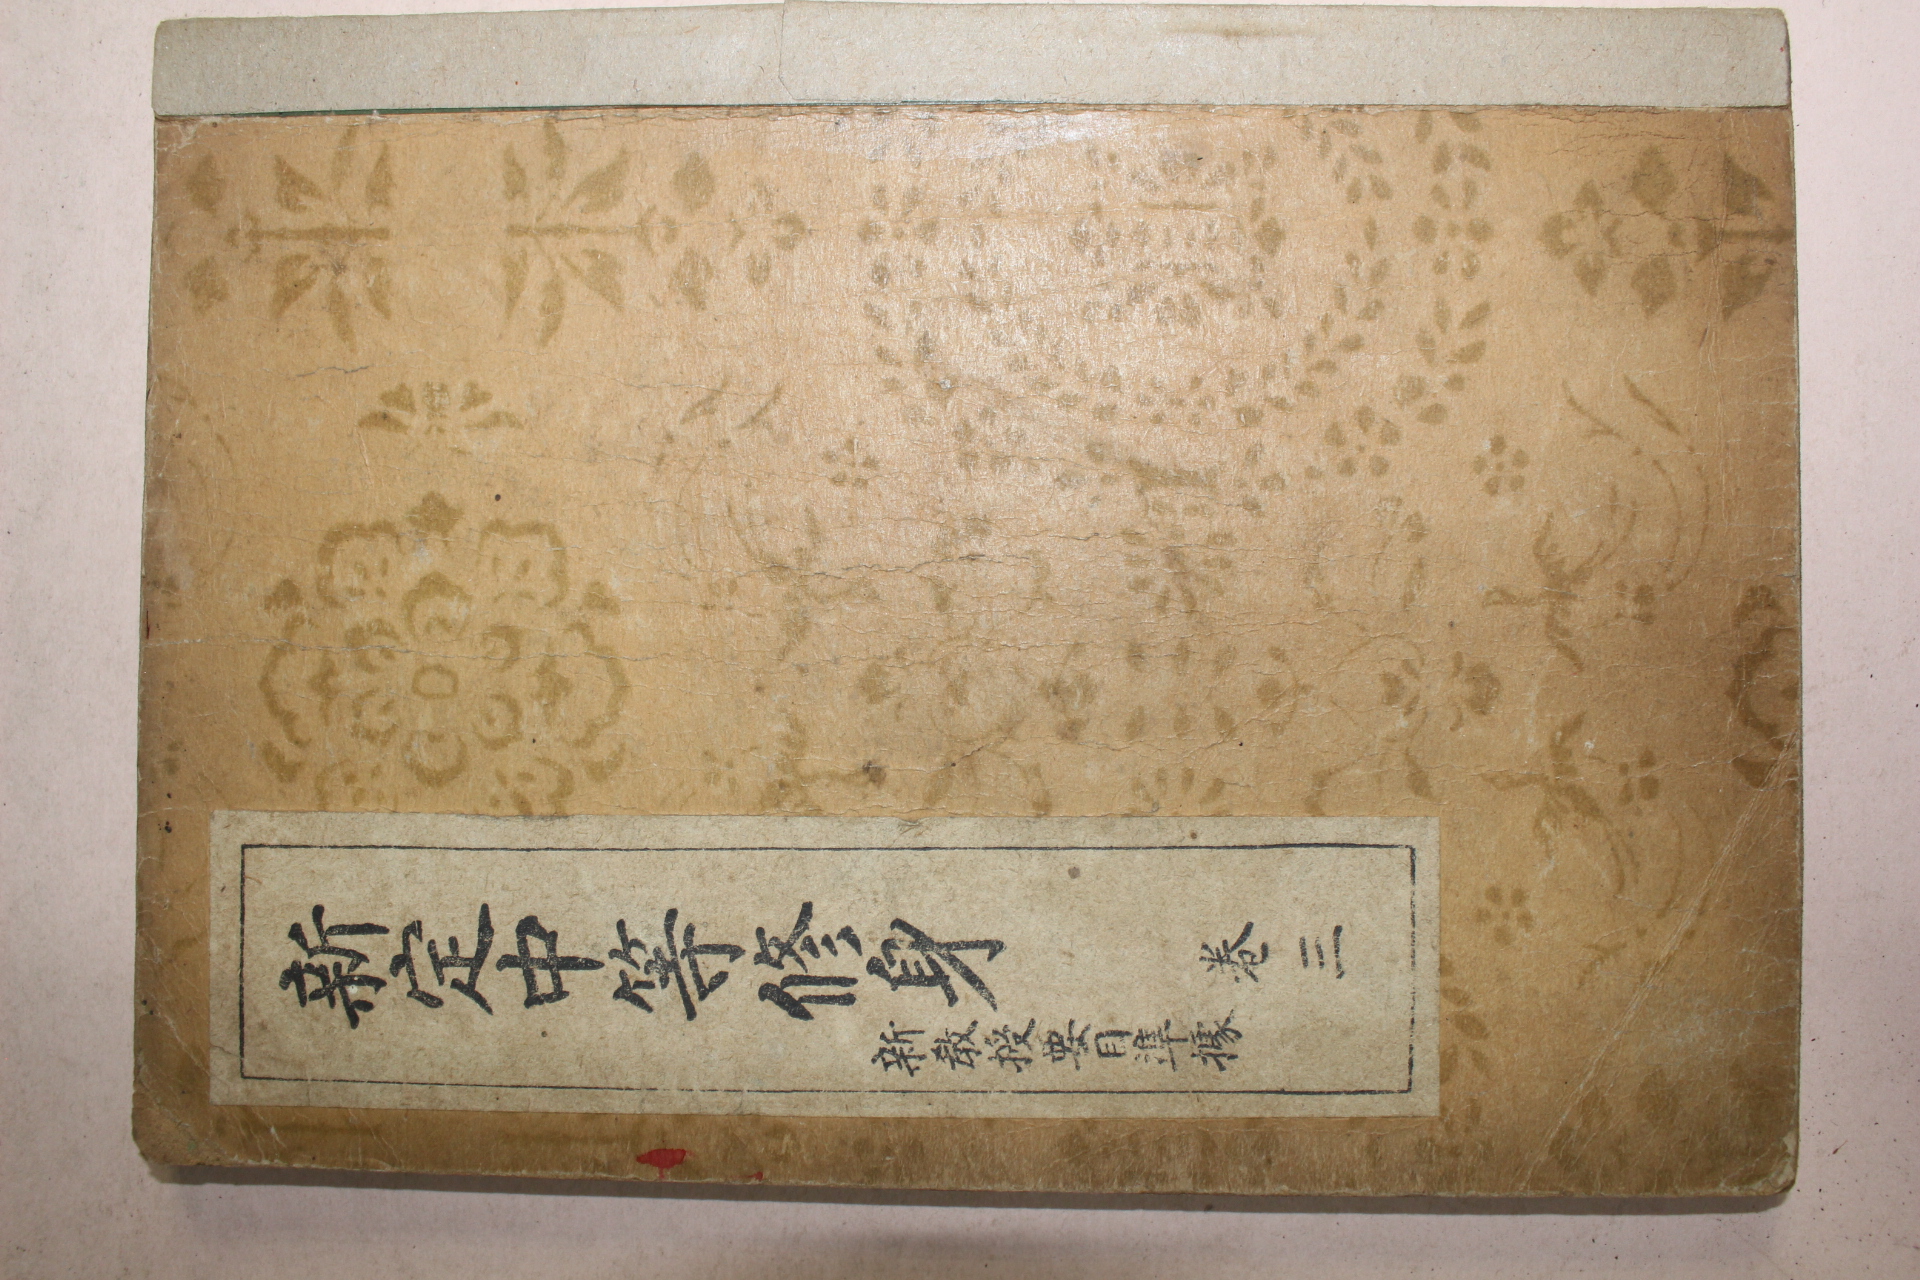 新定中等修身 卷三
新敎授要目準據